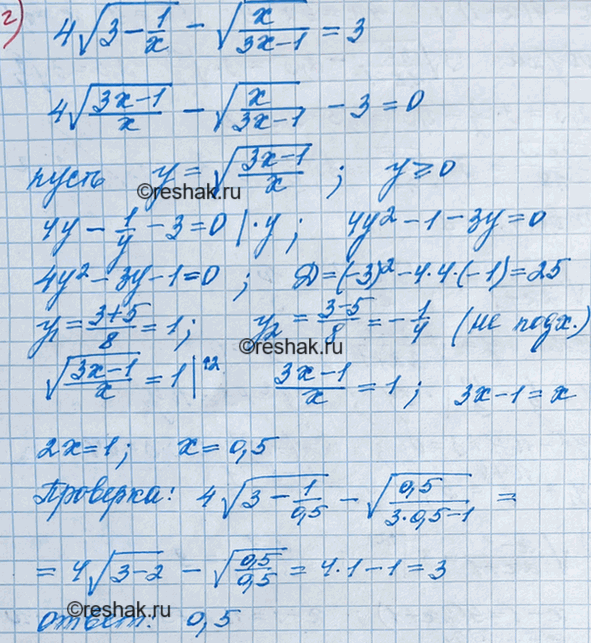 г) 4√(3 − 1/x) − √(x/(3x−1)) = 3
4√((3x−1)/x) − √(x/(3x−1)) − 3 = 0
пусть y = √((3x−1)/x) ; y ≥ 0
©reshak.ru
4y − 1/y − 3 = 0 |·y ; 4y² − 1 − 3y = 0
4y² − 3y − 1 = 0 ; D = (−3)² − 4·4·(−1) = 25
y₁ = (3+5)/8 = 1 ; y₂ = (3−5)/8 = −1/4 (не подх.)
©reshak.ru
√((3x−1)/x) = 1 |^2 (3x−1)/x = 1 ; 3x−1 = x
2x = 1 ; x = 0,5
Проверка: 4√(3 − 1/0,5) − √(0,5/(3·0,5−1)) =
= 4√(3−2) − √(0,5/0,5) = 4·1 − 1 = 3
©reshak.ru
ответ: 0,5